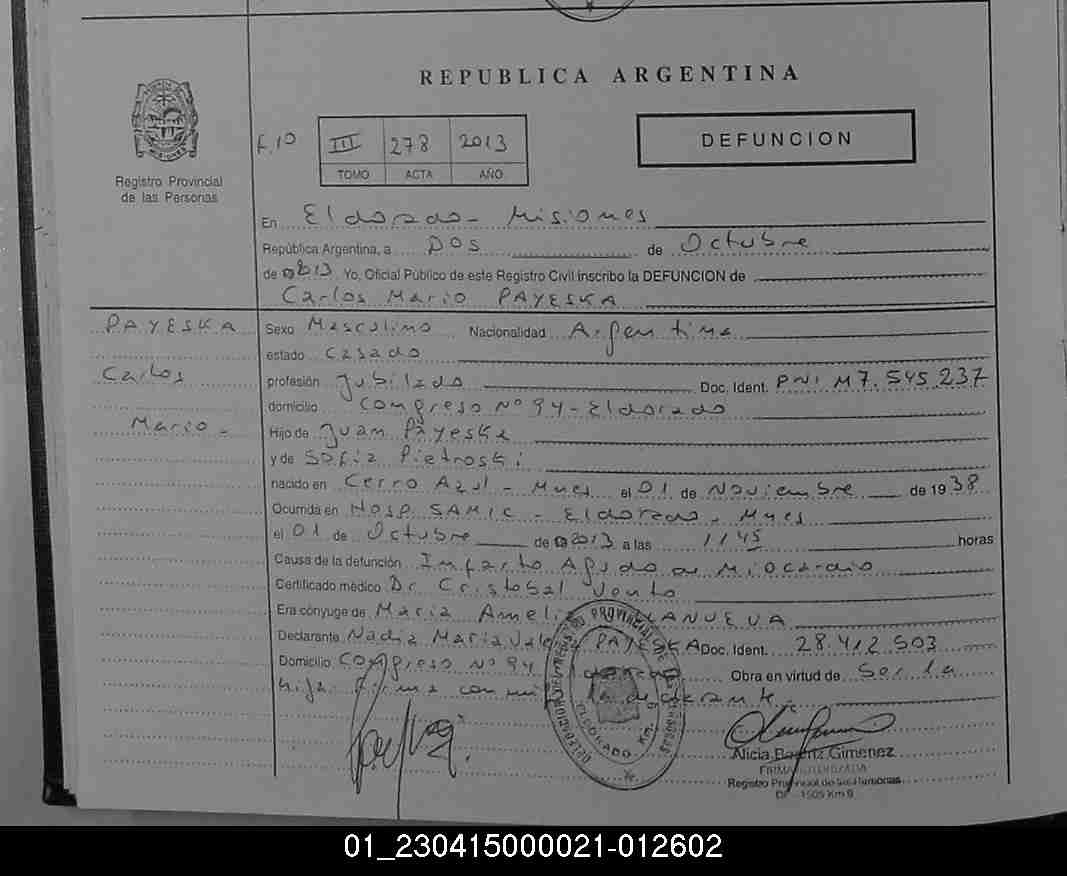 REPUBLICA ARGENTINA
MISIONES
Registro Provincial
de las Personas
F.10
III 278 2013
TOMO ACTA AÑO
DEFUNCION
En Eldorado - Misiones
República Argentina, a DOS de Octubre
de 2013 Yo, Oficial Público de este Registro Civil inscribo la DEFUNCION de
Carlos Mario PAYESKA
PAYESKA
Carlos
Mario -
Sexo Masculino Nacionalidad Argentina
estado Casado
profesión Jubilado Doc. Ident. DNI M7.545.237
domicilio Congreso Nº 94 - Eldorado
Hijo de Juan Payeska
y de Sofia Pietroski
nacido en Cerro Azul - Mnes el 01 de Noviembre de 1938
Ocurrida en Hosp. SAMIC - Eldorado - Mnes
el 01 de Octubre de 2013 a las 1145 horas
Causa de la defunción Infarto Agudo de Miocardio
Certificado médico Dr. Cristobal Vento
Era cónyuge de Maria Ameli VILLANUEVA
Declarante Nadia Maria Vale PAYESKA Doc. Ident. 28.412.503
Domicilio Congreso Nº 94 Obra en virtud de Ser la
hija. Firma conmigo la declarante.
DELEGACION PROVINCIAL DE LAS PERSONAS
ELDORADO Km. 9
Alicia Beatriz Gimenez
FIRMA AUTORIZADA
Registro Provincial de las Personas
1505 Km 9
01_230415000021-012602